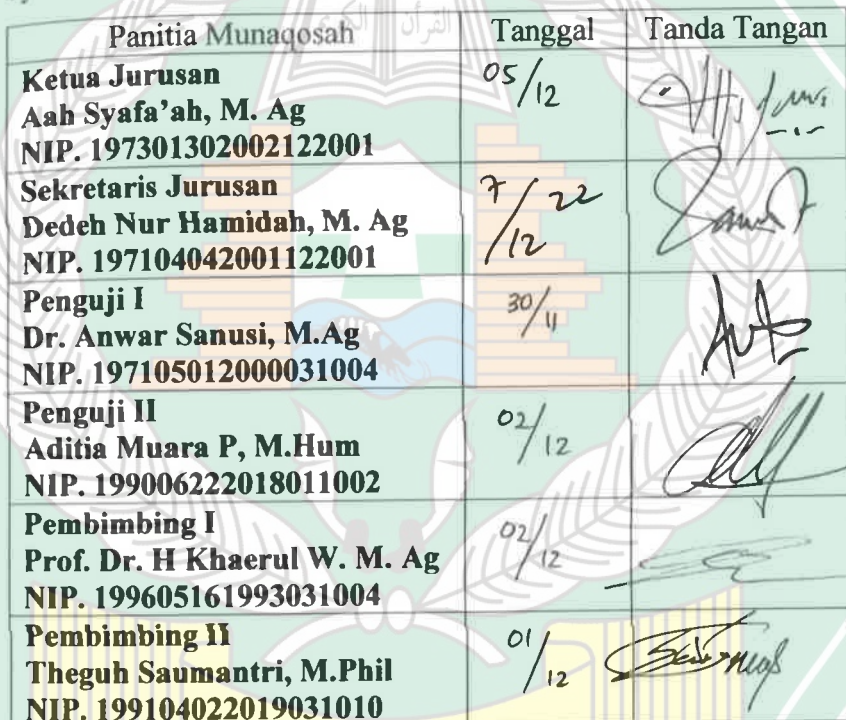 Panitia Munaqosah Tanggal Tanda Tangan
Ketua Jurusan 05/12
Aah Syafa'ah, M. Ag
NIP. 197301302002122001
Sekretaris Jurusan 7/12 22
Dedeh Nur Hamidah, M. Ag
NIP. 197104042001122001
Penguji I 30/11
Dr. Anwar Sanusi, M.Ag
NIP. 197105012000031004
Penguji II 02/12
Aditia Muara P, M.Hum
NIP. 199006222018011002
Pembimbing I 02/12
Prof. Dr. H Khaerul W. M. Ag
NIP. 199605161993031004
Pembimbing II 01/12
Theguh Saumantri, M.Phil
NIP. 199104022019031010